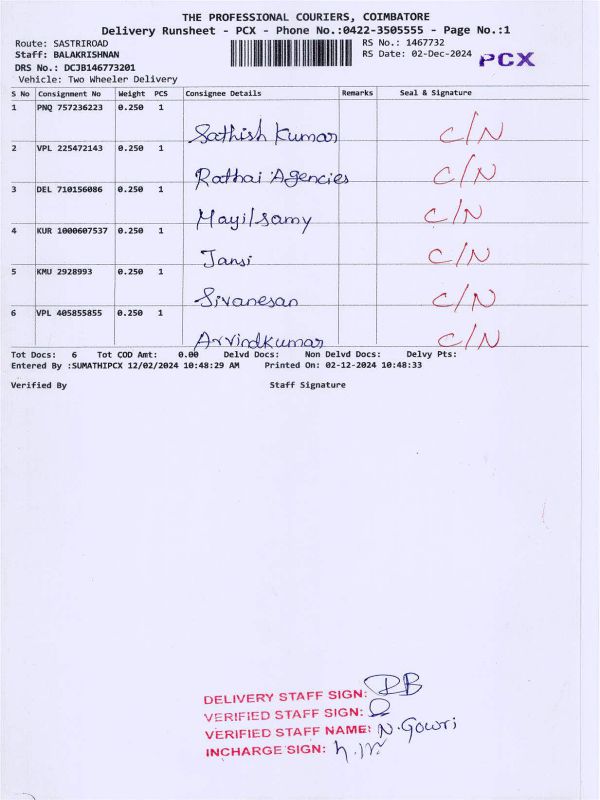 THE PROFESSIONAL COURIERS, COIMBATORE
Delivery Runsheet - PCX - Phone No.:0422-3505555 - Page No.:1
Route: SASTRIROAD RS No.: 1467732
Staff: BALAKRISHNAN RS Date: 02-Dec-2024 PCX
DRS No.: DCJB146773201
Vehicle: Two Wheeler Delivery
S No Consignment No Weight PCS Consignee Details Remarks Seal & Signature
1 PNQ 757236223 0.250 1
Sathish Kumar C/N
2 VPL 225472143 0.250 1
Rathai Agencies C/N
3 DEL 710156086 0.250 1
Mayilsamy C/N
4 KUR 1000607537 0.250 1
Jansi C/N
5 KMU 2928993 0.250 1
Sivanesan C/N
6 VPL 405855855 0.250 1
Arvindkumar C/N
Tot Docs: 6 Tot COD Amt: 0.00 Delvd Docs: Non Delvd Docs: Delvy Pts:
Entered By :SUMATHIPCX 12/02/2024 10:48:29 AM Printed On: 02-12-2024 10:48:33
Verified By Staff Signature
DELIVERY STAFF SIGN: RB
VERIFIED STAFF SIGN:
VERIFIED STAFF NAME: N.Gowri
INCHARGE SIGN: